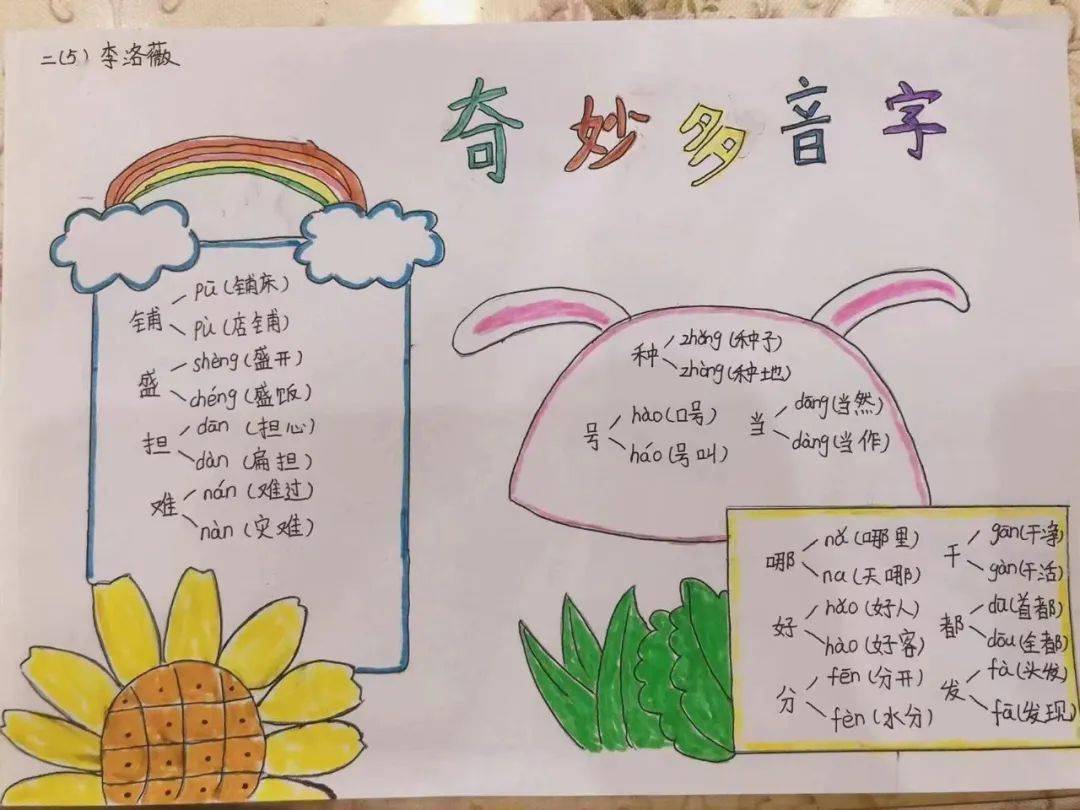 二(5) 李洛薇
奇妙多音字
铺
pū (铺床)
pù (店铺)
盛
shèng (盛开)
chéng (盛饭)
担
dān (担心)
dàn (扁担)
难
nán (难过)
nàn (灾难)
种
zhǒng (种子)
zhòng (种地)
号
hào (口号)
háo (号叫)
当
dāng (当然)
dàng (当作)
哪
nǎ (哪里)
na (天哪)
好
hǎo (好人)
hào (好客)
分
fēn (分开)
fèn (水分)
干
gān (干净)
gàn (干活)
都
dū (首都)
dōu (全都)
发
fà (头发)
fā (发现)